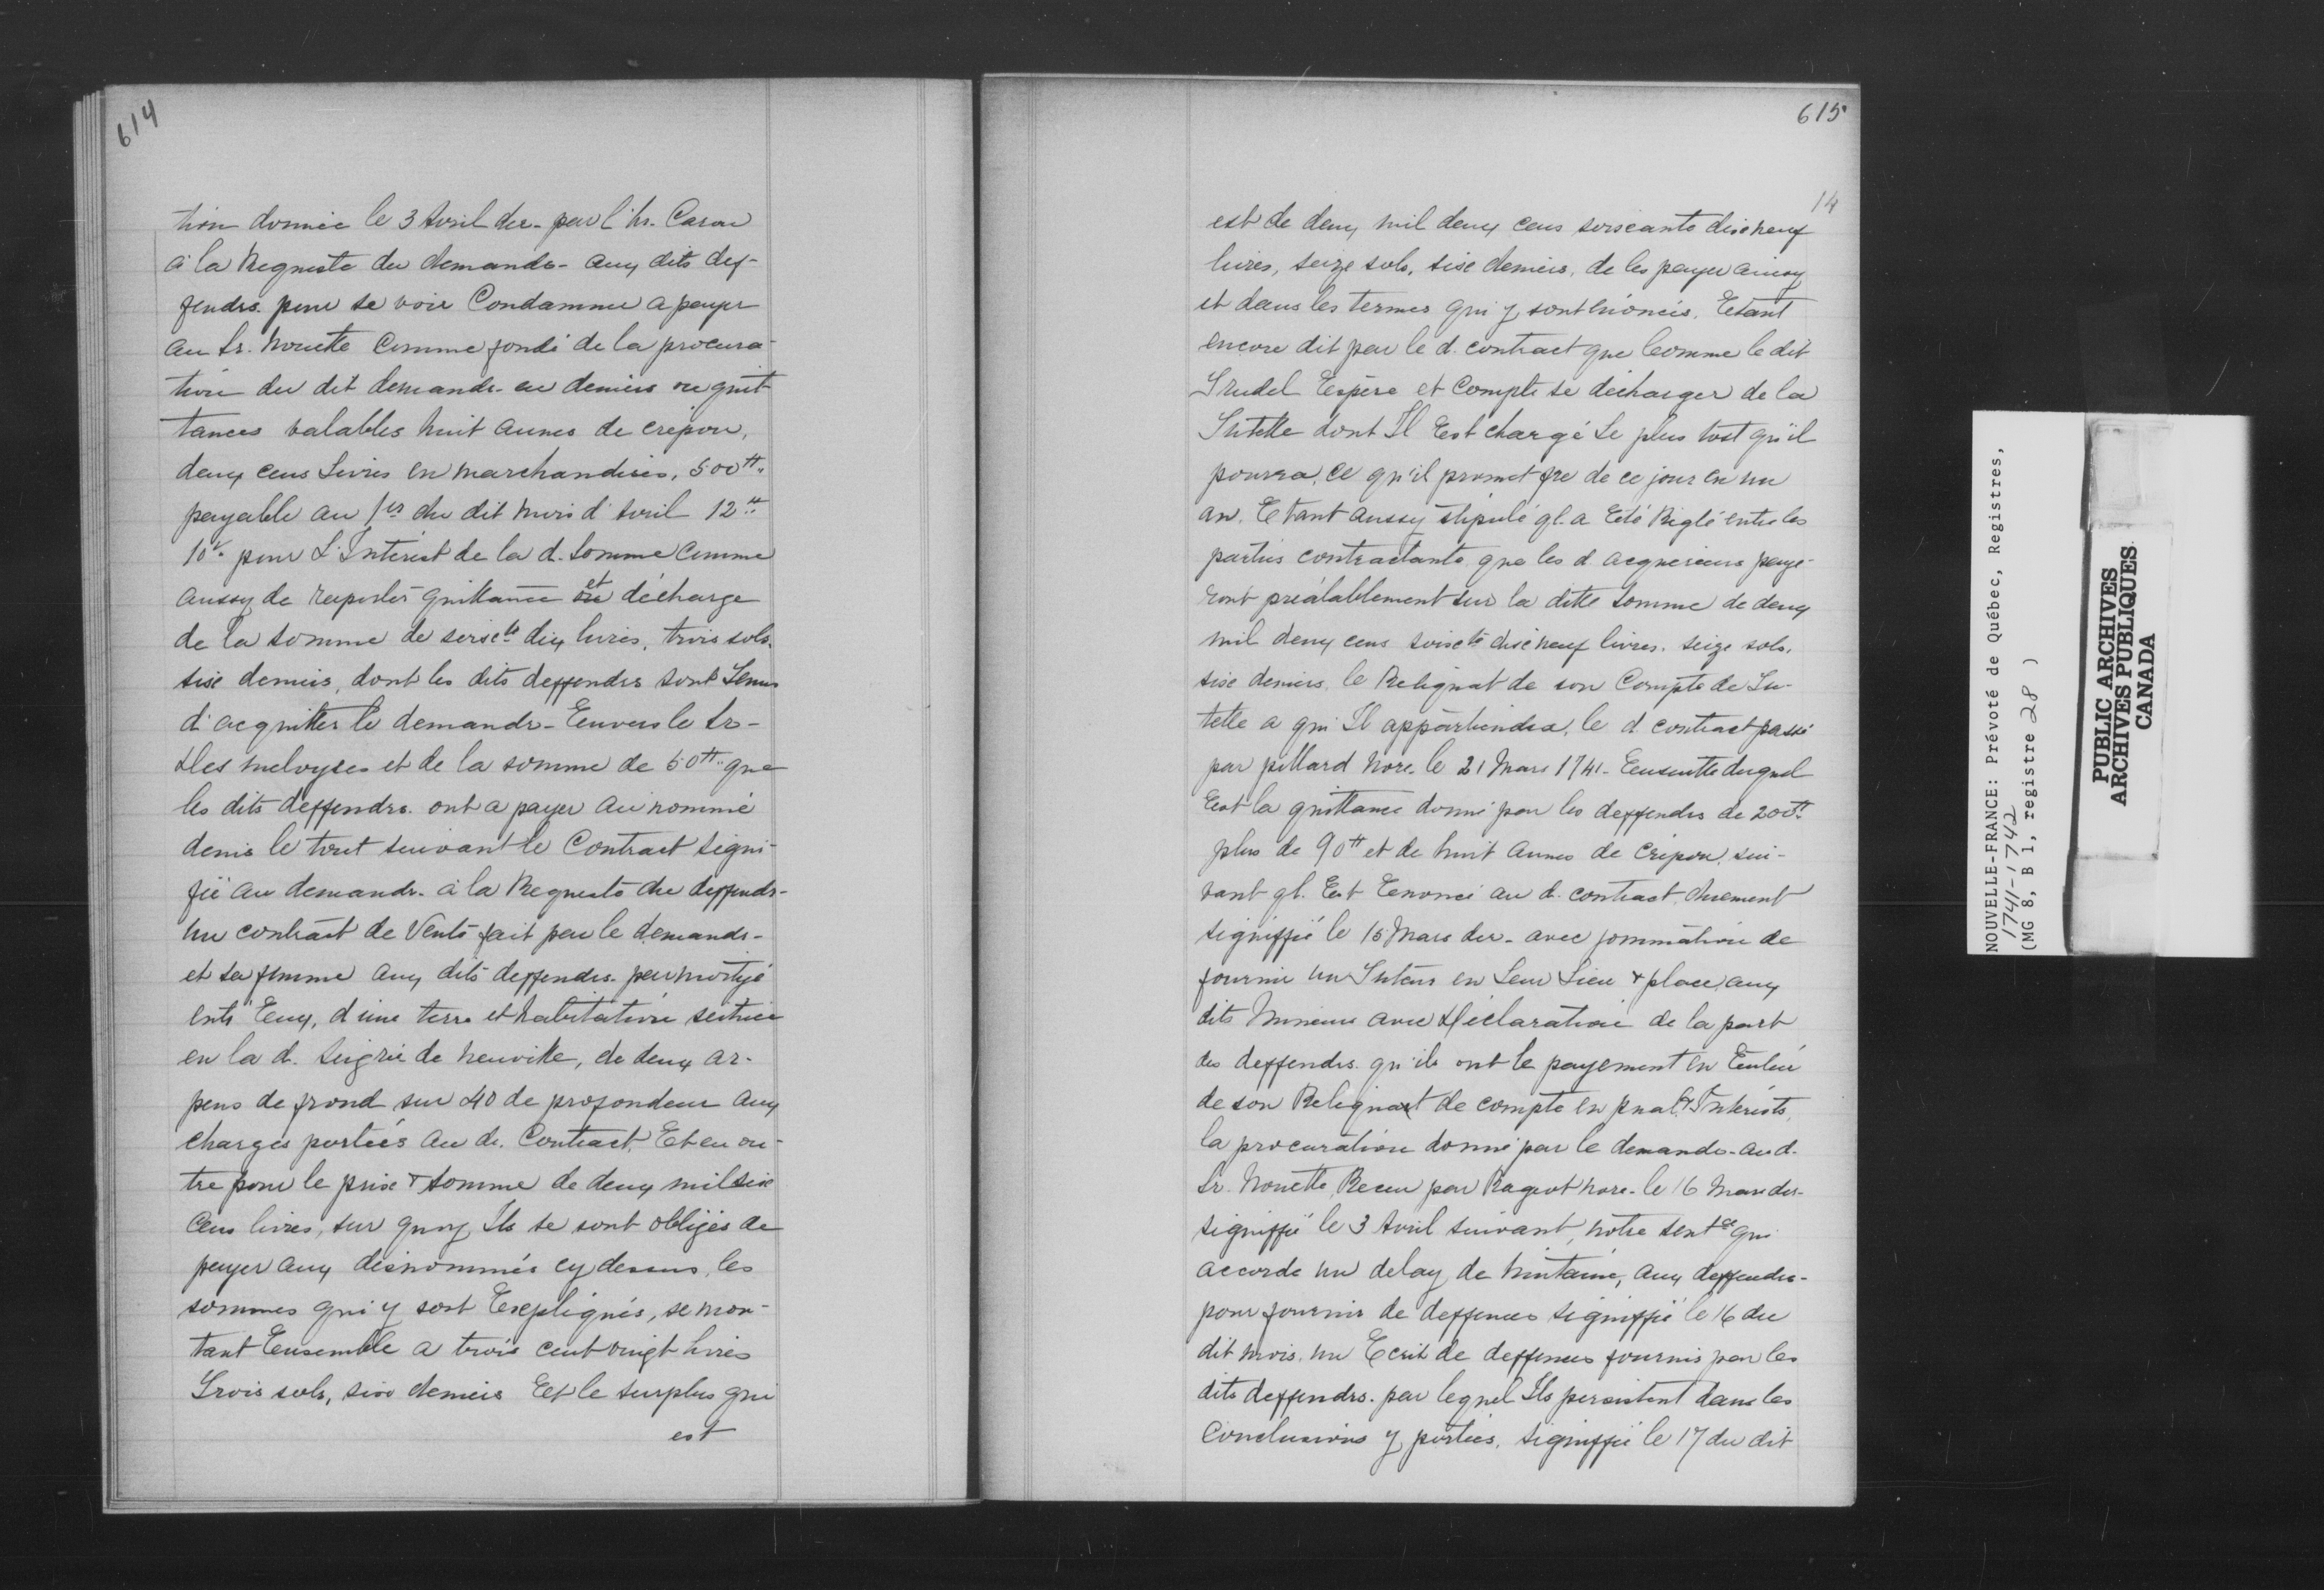 614
tion donnée le 3 Avril der. par l'hr. Caron
à la Requeste du demandr. aux dits def-
fendrs. pour se voir Condamner a payer
au Sr. Nouette Comme fondé de la procura-
tion du dit demandr. en deniers ou quit-
tances valables huit aunes de crépon,
deux cens Livres en marchandises, 500tt..
payable au 1er du dit mois d'Avril 12tt..
10s. pour L'Intérest de la d. Somme Comme
aussy de raporter quittance et décharge
de la somme de soixte. dix livres, trois sols.
sixe deniers, dont les dits deffendrs sont Tenus
d'acquitter le demandr. Eenvers le Sr.
des meloyses et de la somme de 50tt.. que
les dits deffendrs. ont a payer au nommé
denis le tout suivant le Contract signi-
fié au demandr. à la Requeste du deffendr.
Un contract de Vente fait par le demandr.
et sa femme aux dits deffendrs. par moityé
entr'Eux, d'une terre et habitation scituée
en la d. Seigrie de neuville, de deux ar-
pens de frond sur 40 de profondeur aux
charges portées au d. Contract, Et en ou-
tre pour le prix & somme de deux mil sixe
Cens livres, sur quoy Ils se sont obligés de
payer aux dénommés cy dessus, les
sommes qui y sont Expliqués, se mon-
tant Ensemble a trois cent vingt livres
Trois sols, six deniers Et le surplus qui
est
615
14
est de deux mil deux cens soixante dixe neuf
livres, seize sols, sixe deniers, de les payer ainsy
et dans les termes qui y sont énoncés. Etant
encore dit par le d. contract que Comme le dit
Trudel Espère et Compte se décharger de la
Tutelle dont Il Est chargé Le plus tost qu'il
pourra, ce qu'il promet fre de ce jour en un
an. Etant aussy stipulé ql. a Eté Réglé entre les
parties contractante que les d. acquereurs paye-
ront préalablement sur la ditte somme de deux
mil deux cens soixte dixe neuf livres. seize sols.
sixe deniers. le Reliquat de son Compte de Tu-
telle a qui Il appartiendra, le d. contract passé
par pillard Nore. le 21 Mars 1741. Eensuitte duquel
Eest la quittance donné par les deffendrs de 200tt.
plus de 90tt et de huit aunes de Crépon, sui-
vant ql. Est Eenoncé au d. contract, duement
signiffié le 15 Mars der. avec sommation de
fournir un Tuteur en Leur Lieu & place, aux
dits Mineurs avec déclaration de la part
des deffendrs. qu'ils ont le payement en Eentier
de son Reliquat de compte en pnal. & Intérests,
la procuration donné par le demandr. au d.
Sr. Nouette, Receu par Rageot nore. le 16 Mars der.
signiffié le 3 Avril suivant, notre sentce qui
accorde un delay de huitaine, aux deffendrs.
pour fournir de deffences signiffié le 16 du
dit mois. un Ecrit de deffences fournis par les
dits deffendrs. par lequel Ils persistent dans les
Conclusions y portées, signiffié le 17 du dit
NOUVELLE-FRANCE: Prévoté de Québec, Registres,
1741-1742
(MG 8, B 1, registre 28 )
PUBLIC ARCHIVES
ARCHIVES PUBLIQUES
CANADA